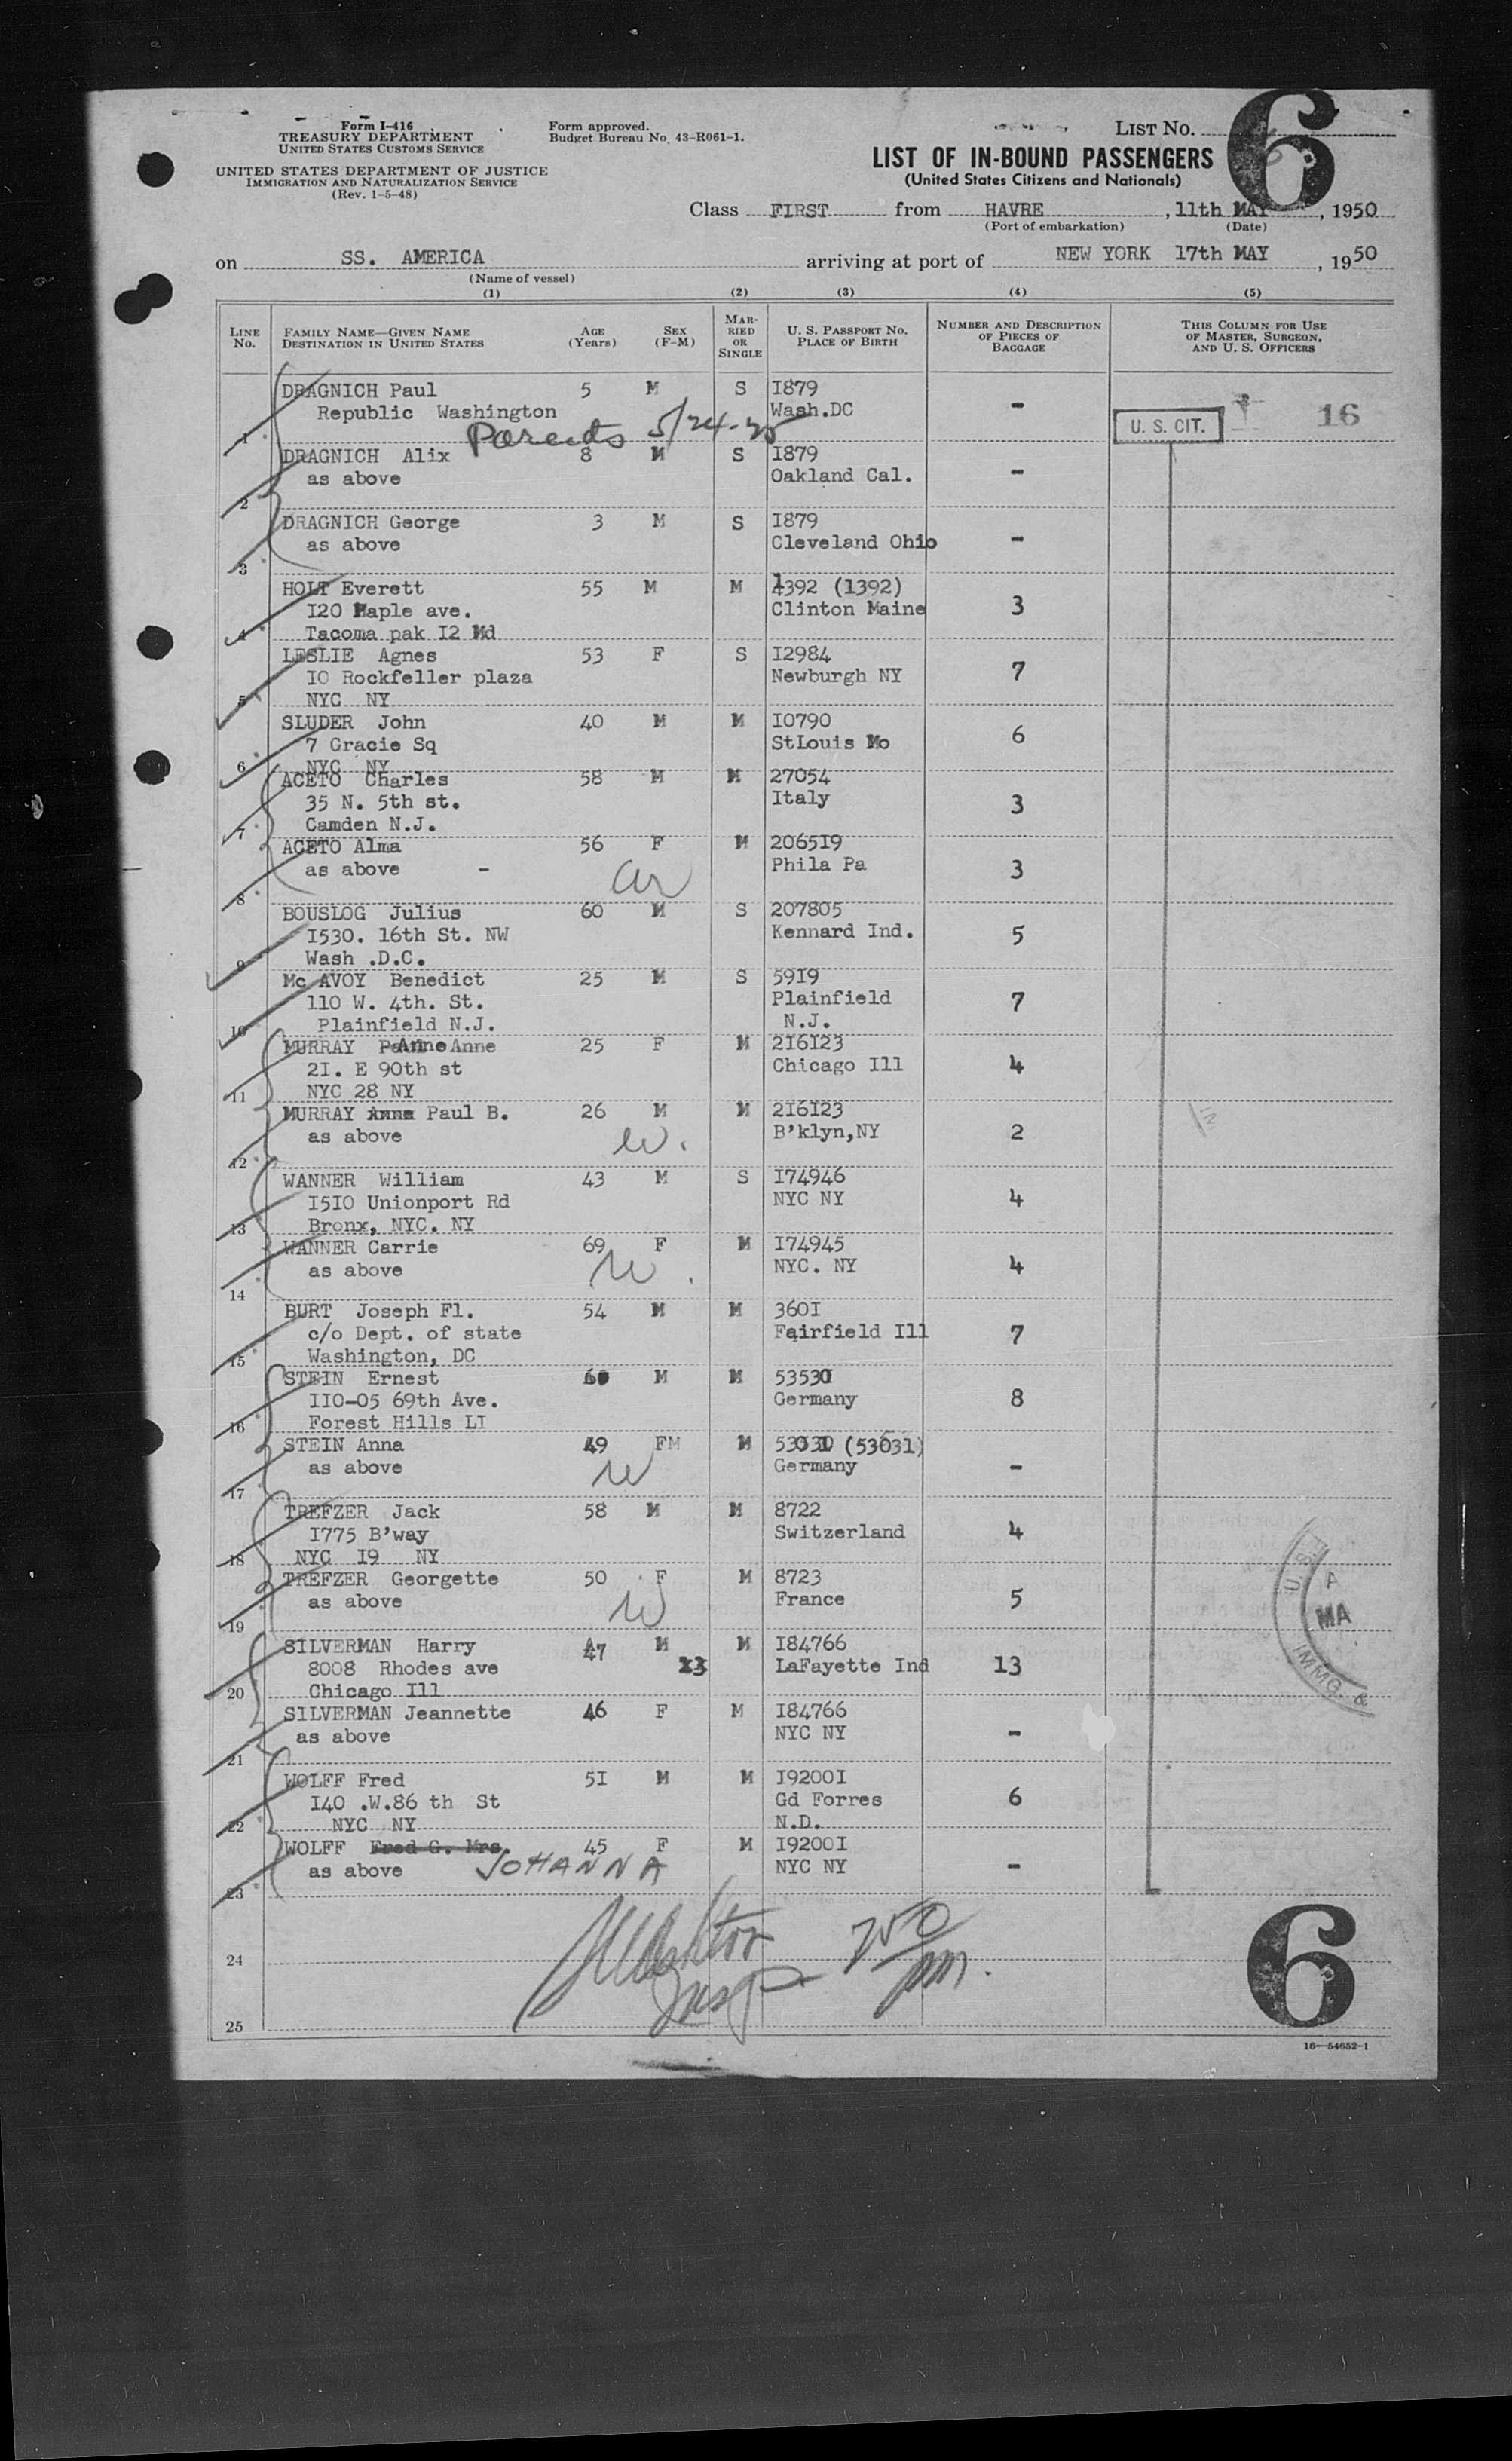 Form I-416
TREASURY DEPARTMENT
UNITED STATES CUSTOMS SERVICE
UNITED STATES DEPARTMENT OF JUSTICE
IMMIGRATION AND NATURALIZATION SERVICE
(Rev. 1-5-48)
Form approved.
Budget Bureau No. 43-R061-1.
LIST NO. 6
LIST OF IN-BOUND PASSENGERS
(United States Citizens and Nationals)
Class FIRST from HAVRE, 11th MAY, 1950
(Port of embarkation) (Date)
on SS. AMERICA arriving at port of NEW YORK 17th MAY, 1950
(Name of vessel)
(1) (2) (3) (4) (5)
LINE NO. FAMILY NAME—GIVEN NAME DESTINATION IN UNITED STATES AGE (Years) SEX (F-M) MARRIED OR SINGLE U. S. PASSPORT NO. PLACE OF BIRTH NUMBER AND DESCRIPTION OF PIECES OF BAGGAGE THIS COLUMN FOR USE OF MASTER, SURGEON, AND U. S. OFFICERS
DRAGNICH Paul 5 M S I879 -
Republic Washington Wash.DC
1 Parents 5/24-25 U. S. CIT. 16
DRAGNICH Alix 8 M S I879
as above Oakland Cal. -
2
DRAGNICH George 3 M S I879
as above Cleveland Ohio -
3
HOLT Everett 55 M M 1392 (1392)
I20 Maple ave. Clinton Maine 3
4 Tacoma pak I2 Md
LESLIE Agnes 53 F S I2984
IO Rockfeller plaza Newburgh NY 7
5 NYC NY
SLUDER John 40 M M I0790
7 Gracie Sq StLouis Mo 6
6 NYC NY
ACETO Charles 58 M M 27054
35 N. 5th st. Italy 3
7 Camden N.J.
ACETO Alma 56 F M 2065I9
as above - Phila Pa 3
8
BOUSLOG Julius 60 M S 207805
I530. 16th St. NW Kennard Ind. 5
9 Wash .D.C.
Mc AVOY Benedict 25 M S 59I9
110 W. 4th. St. Plainfield 7
10 Plainfield N.J. N.J.
MURRAY Anne Anne 25 F M 2I6I23
2I. E 90th st Chicago Ill 4
11 NYC 28 NY
MURRAY Anna Paul B. 26 M M 2I6I23
as above w. B'klyn,NY 2
12
WANNER William 43 M S I74946
I5IO Unionport Rd NYC NY 4
13 Bronx, NYC. NY
WANNER Carrie 69 F M I74945
as above w. NYC. NY 4
14
BURT Joseph Fl. 54 M M 360I
c/o Dept. of state Fairfield Ill 7
15 Washington, DC
STEIN Ernest 60 M M 53530
IIO-05 69th Ave. Germany 8
16 Forest Hills LI
STEIN Anna 49 FM M (53031)
as above w Germany -
17
TREFZER Jack 58 M M 8722
I775 B'way Switzerland 4
18 NYC I9 NY
TREFZER Georgette 50 F M 8723
as above w France 5
19
SILVERMAN Harry 47 M M I84766
8008 Rhodes ave 13 LaFayette Ind 13
20 Chicago Ill
SILVERMAN Jeannette 46 F M I84766
as above NYC NY -
21
WOLFF Fred 5I M M I9200I
I40 .W.86 th St Gd Forres 6
22 NYC NY N.D.
WOLFF Fred G. Mrs. 45 F M I9200I
as above JOHANNA NYC NY -
23
24
Insp 250 pm.
25
6
16—54652-1
U. S.
MA
IMMG. &